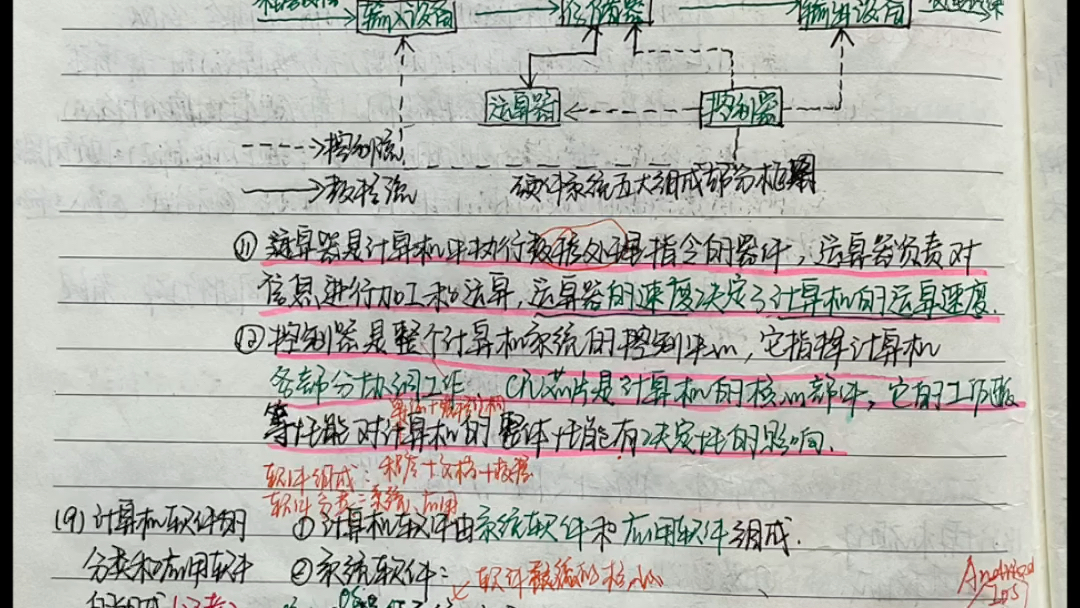 输入设备 存储器 输出设备
运算器 控制器
控制流
数据流 硬件系统五大组成部分框图
⑪ 运算器是计算机中执行数据处理指令的器件，运算器负责对
信息进行加工和运算，运算器的速度决定了计算机的运算速度.
⑫ 控制器是整个计算机系统的控制中心，它指挥计算机
各部分协调工作 CPU芯片是计算机的核心部件，它的工作
等性能对计算机的整体性能有决定性的影响.
软件组成：程序+文档+数据
软件分类：系统、应用
(9)计算机软件的 ① 计算机软件由系统软件和应用软件组成.
分类和应用软件 ② 系统软件： 软件系统的核心
的组成